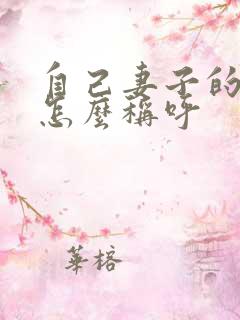 自己妻子的
怎麼稱呼
華榕